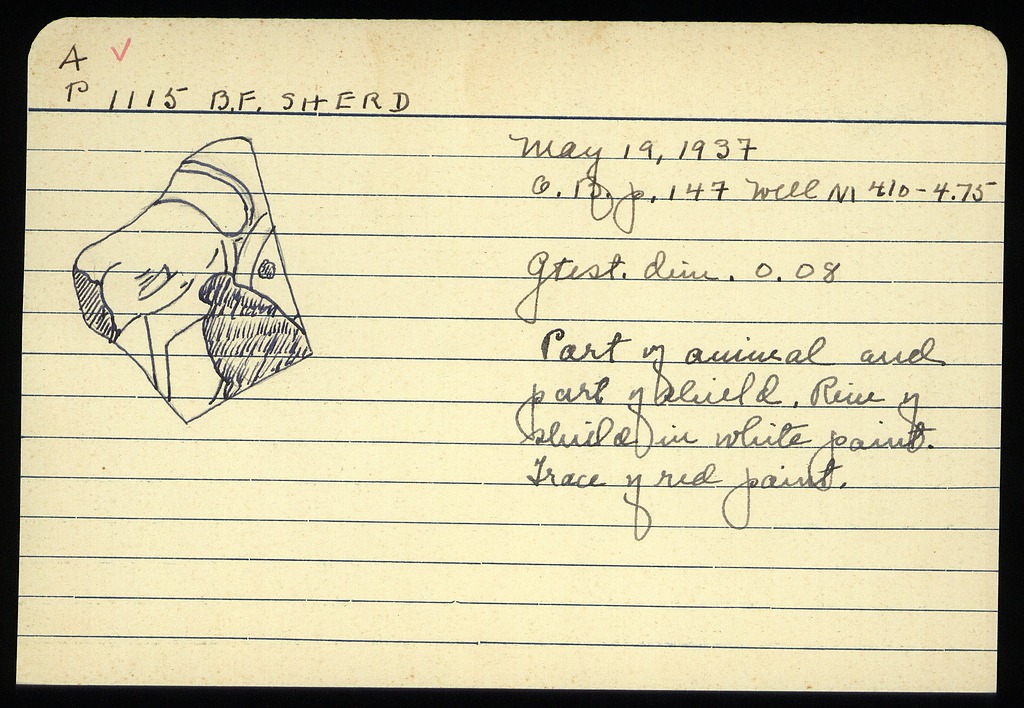 A ✓
P 1115 B.F. SHERD
May 19, 1937
O.B. p. 147 Well N1 410-4.75
Gtest. dim. 0.08
Part of animal and
part of shield. Rim of
shield in white paint.
Trace of red paint.